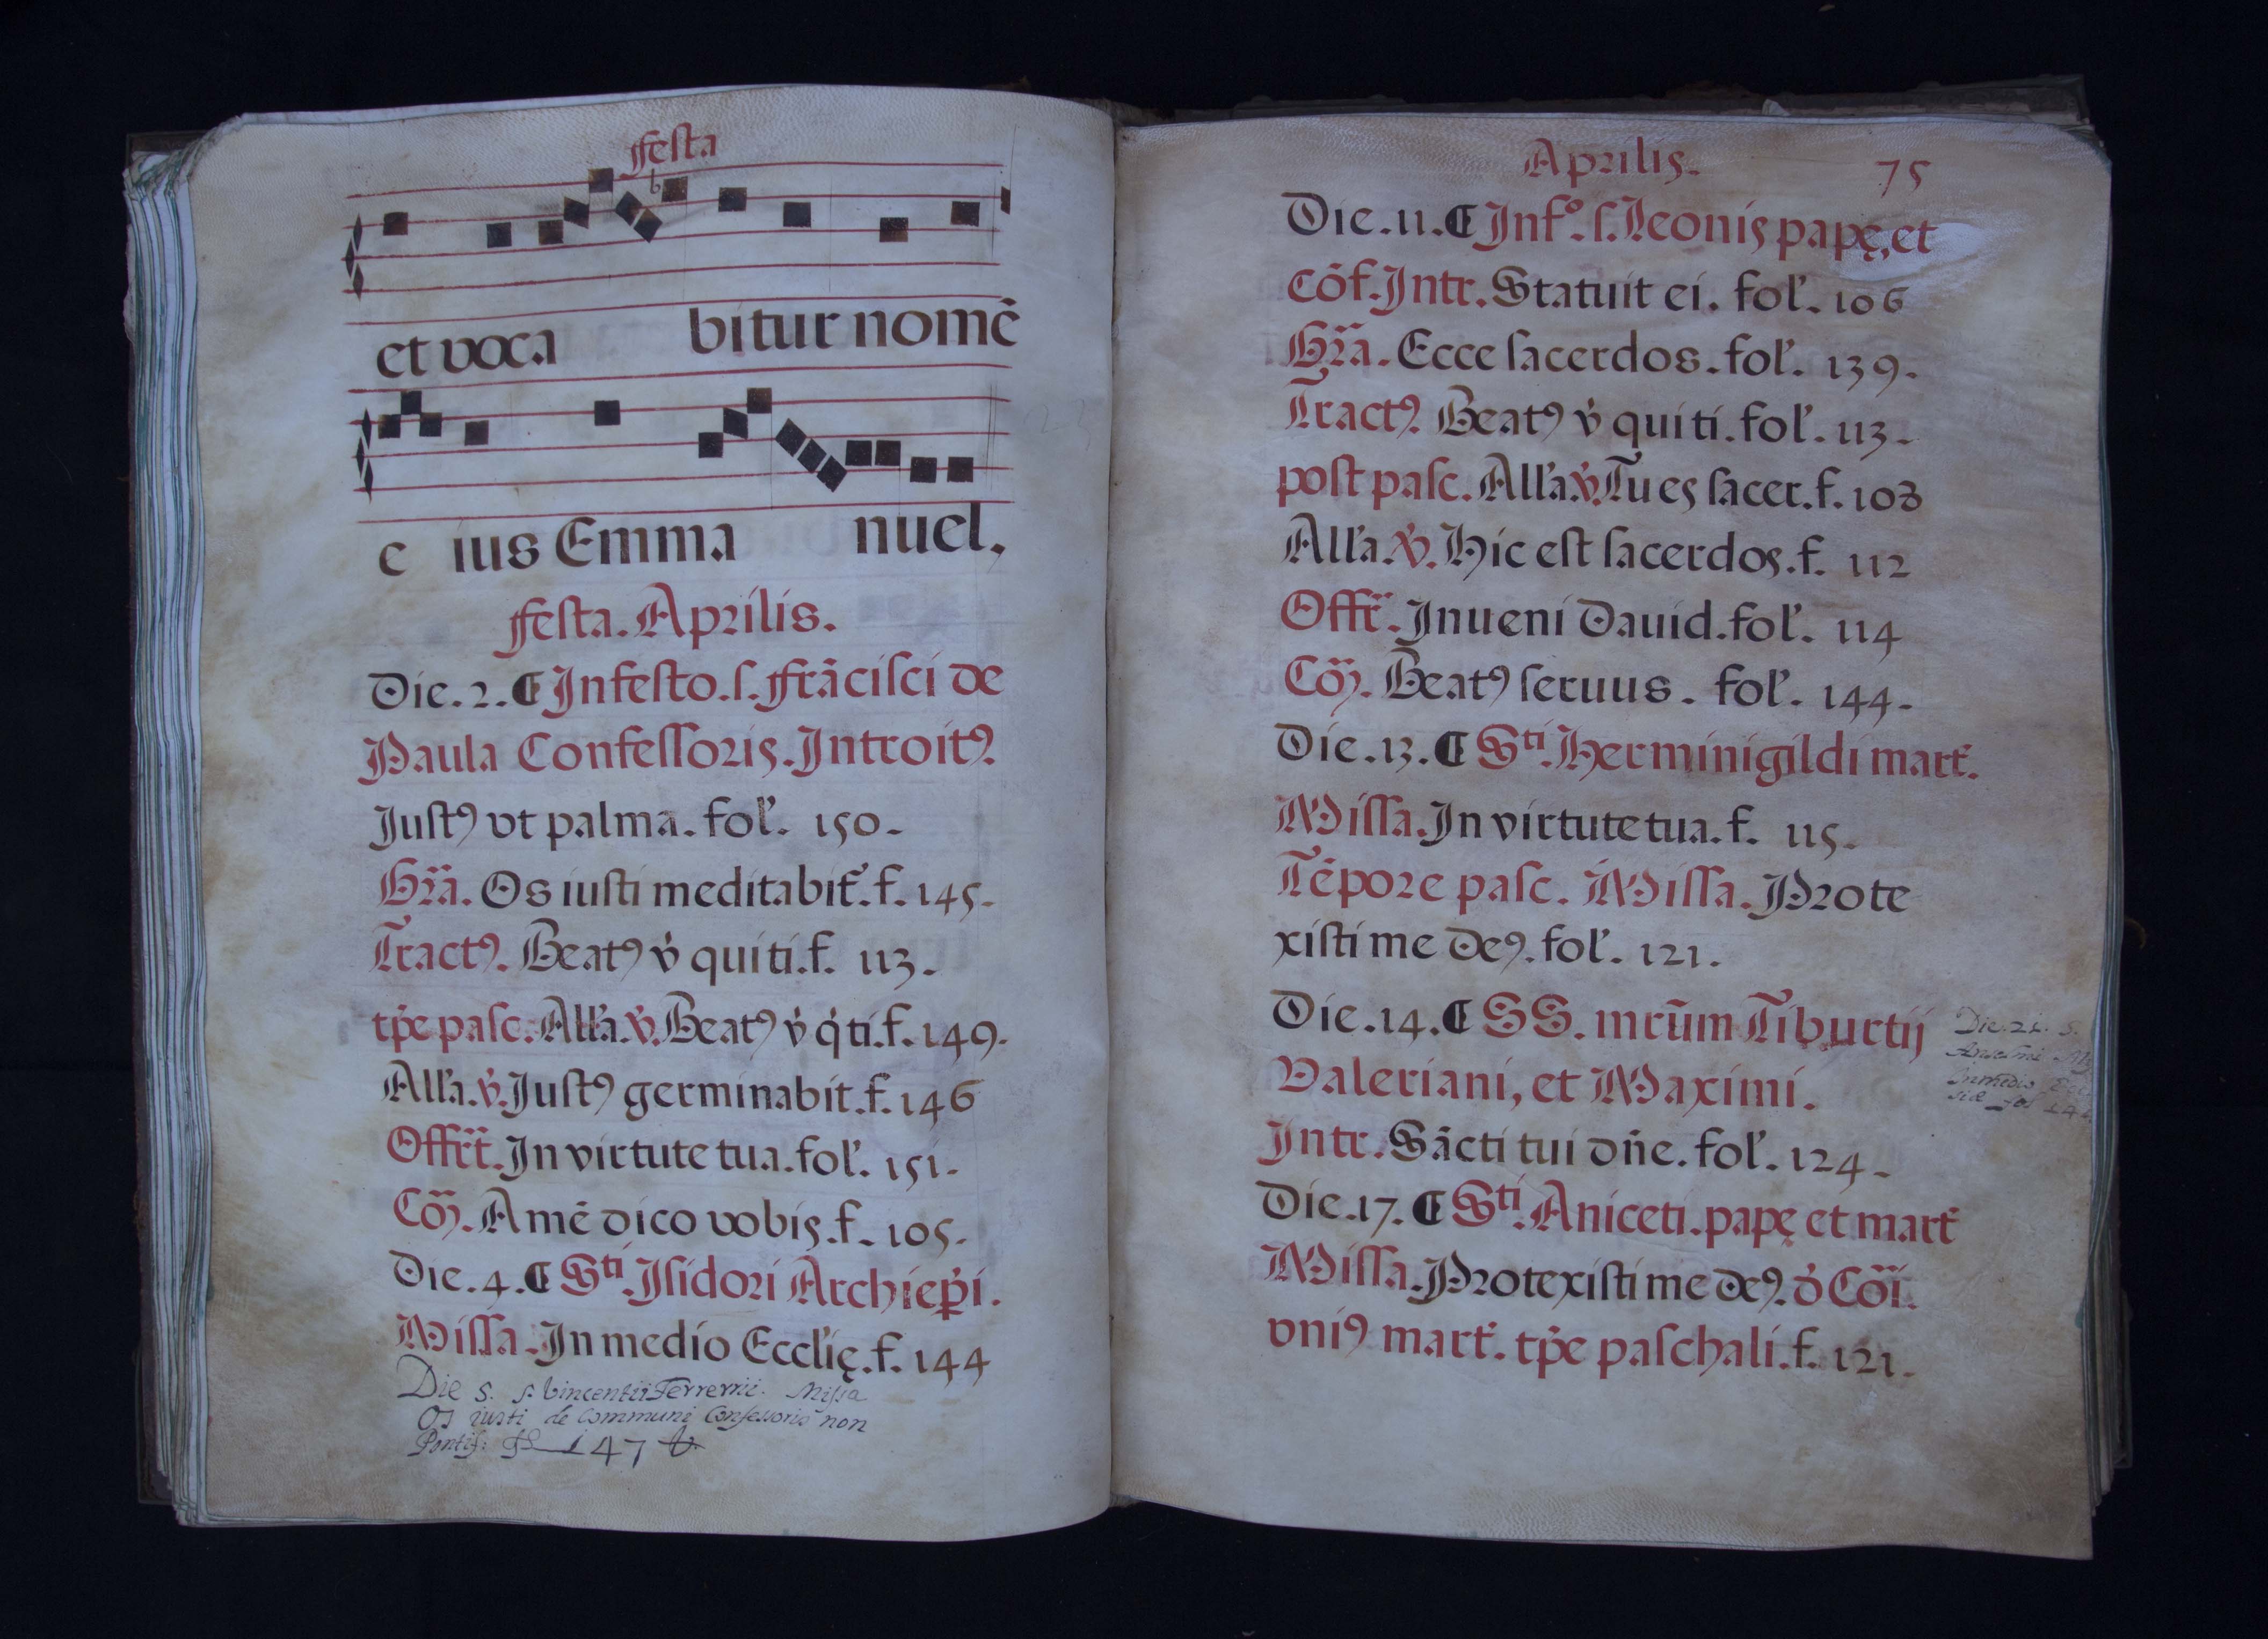 festa
et voca bitur nomē
e ius Emma nuel.
festa. Aprilis.
Die. 2. ¶ In festo. s. frācisci de
Paula Confessoris. Introitꝰ.
Justꝰ vt palma. fol'. 150.
Gr̄a. Os iusti meditabit᷑. f. 145.
Tractꝰ. Beatꝰ v̇ qui ti. f. 113.
tp̄e pasc. All'a. v̇. Beatꝰ v̇ q̇ ti. f. 149.
All'a. v̇. Justꝰ germinabit. f. 146
Offr̄t. In virtute tua. fol'. 151.
Cōꝫ. Amē dico vobis. f. 105.
Die. 4. ¶ Sti. Isidori Archiep̄i.
Missa. In medio Eccl'ię. f. 144
Die 5. s. Vincentii Ferrerii. Missa
Os iusti de Communi Confessoris non
Pontif: fol 147 v.
Aprilis. 75
Die. 11. ¶ In fº. s. Leonis papę, et
cōf. Intr. Statuit ei. fol'. 106
Gr̄a. Ecce sacerdos. fol'. 139.
Tractꝰ. Beatꝰ v̇ qui ti. fol'. 113.
post pasc. All'a. v̇. Tu es sacer. f. 108
All'a. v̇. Hic est sacerdos. f. 112
Offr̄t. Inueni Dauid. fol'. 114
Cōꝫ. Beatꝰ seruus. fol'. 144.
Die. 13. ¶ Sti. Herminigildi mart᷑.
Missa. In virtute tua. f. 115.
Tēpore pasc. Missa. Prote
xisti me deꝰ. fol'. 121.
Die. 14. ¶ SS. mrūm Tiburtij
Valeriani, et Maximi.
Intr. Sācti tui dn̄e. fol'. 124.
Die. 17. ¶ Sti. Aniceti. papę et mart᷑
Missa. Protexisti me deꝰ. ḋ Cōi.
vniꝰ mart᷑. tp̄e paschali. f. 121.
Die. 21. S.
Anselmi
In medio
siæ fol